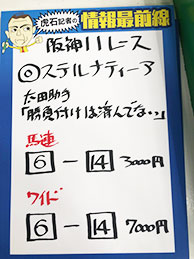 虎石記者の
情報最前線
阪神11レース
◎ステルナティーア
太田助手
「勝負付けは済んでない。」
馬連
6 - 14 3000円
ワイド
6 - 14 7000円